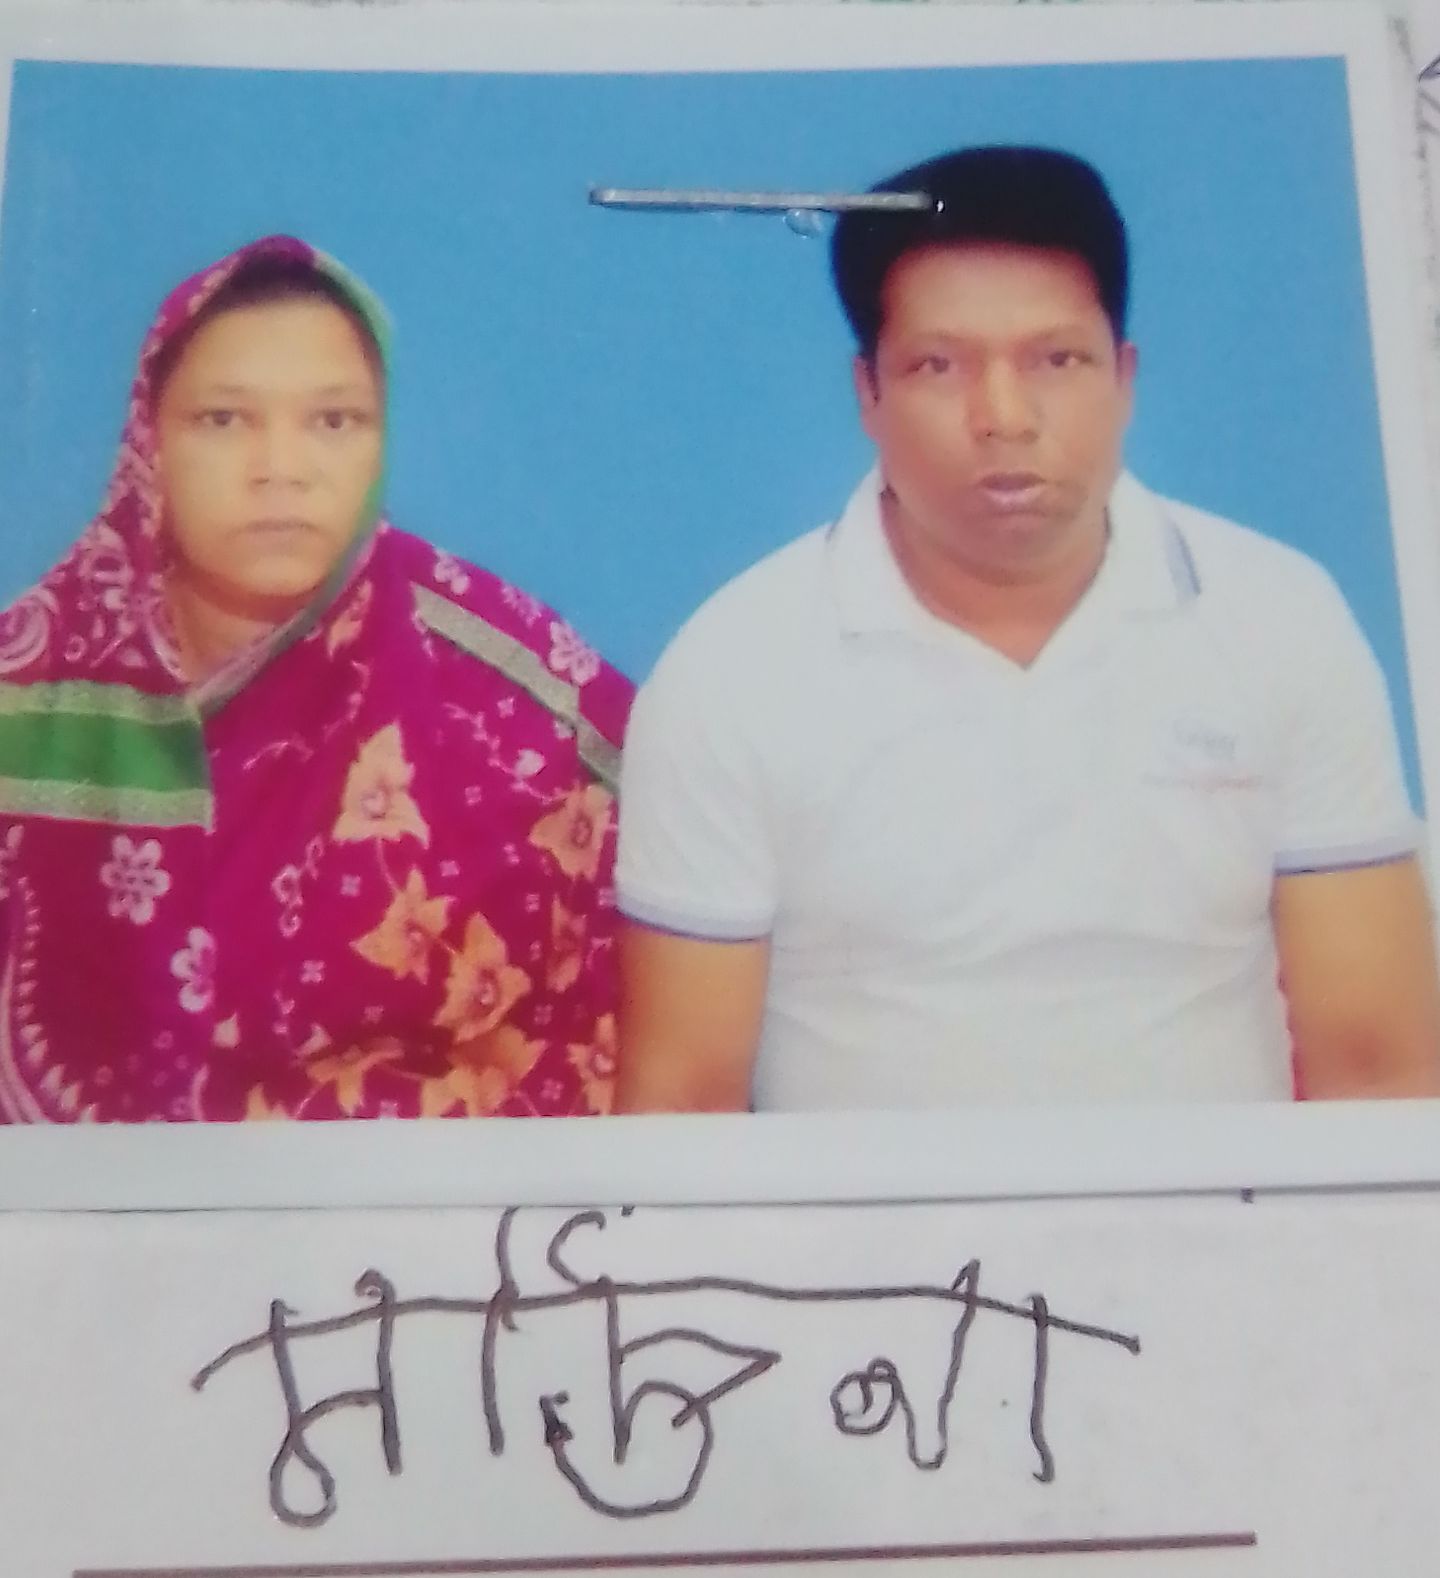 মর্জিনা